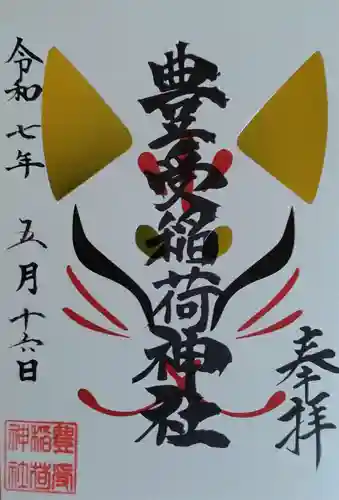 奉拝
豊受稲荷神社
令和七年 五月十六日
豊受
稲荷
神社